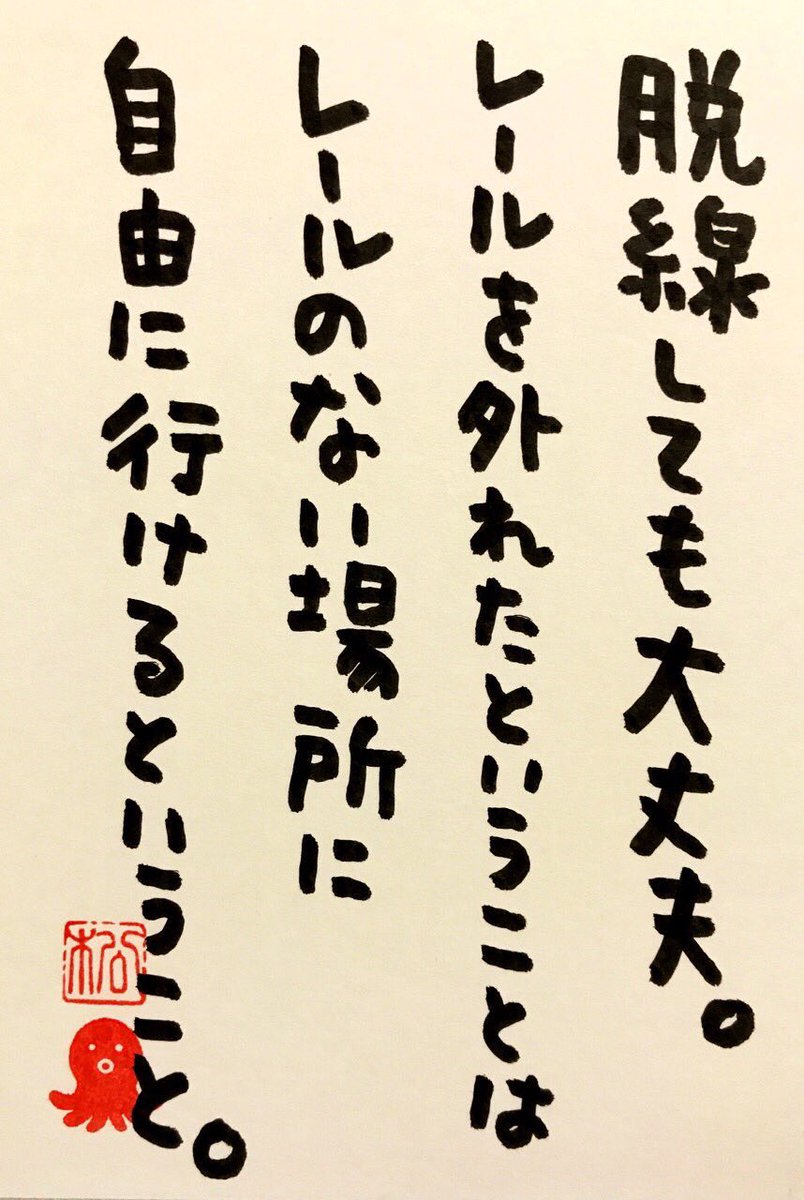 脱線しても大丈夫。
レールを外れたということは
レールのない場所に
自由に行けるということ。
松